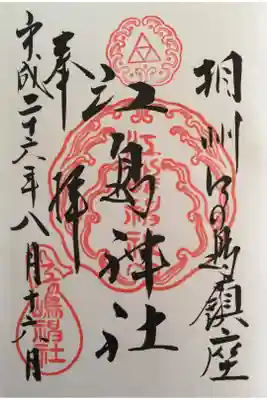 相州江の島鎮座
奉拝
江島神社
平成二十六年八月十六日
江嶋神社